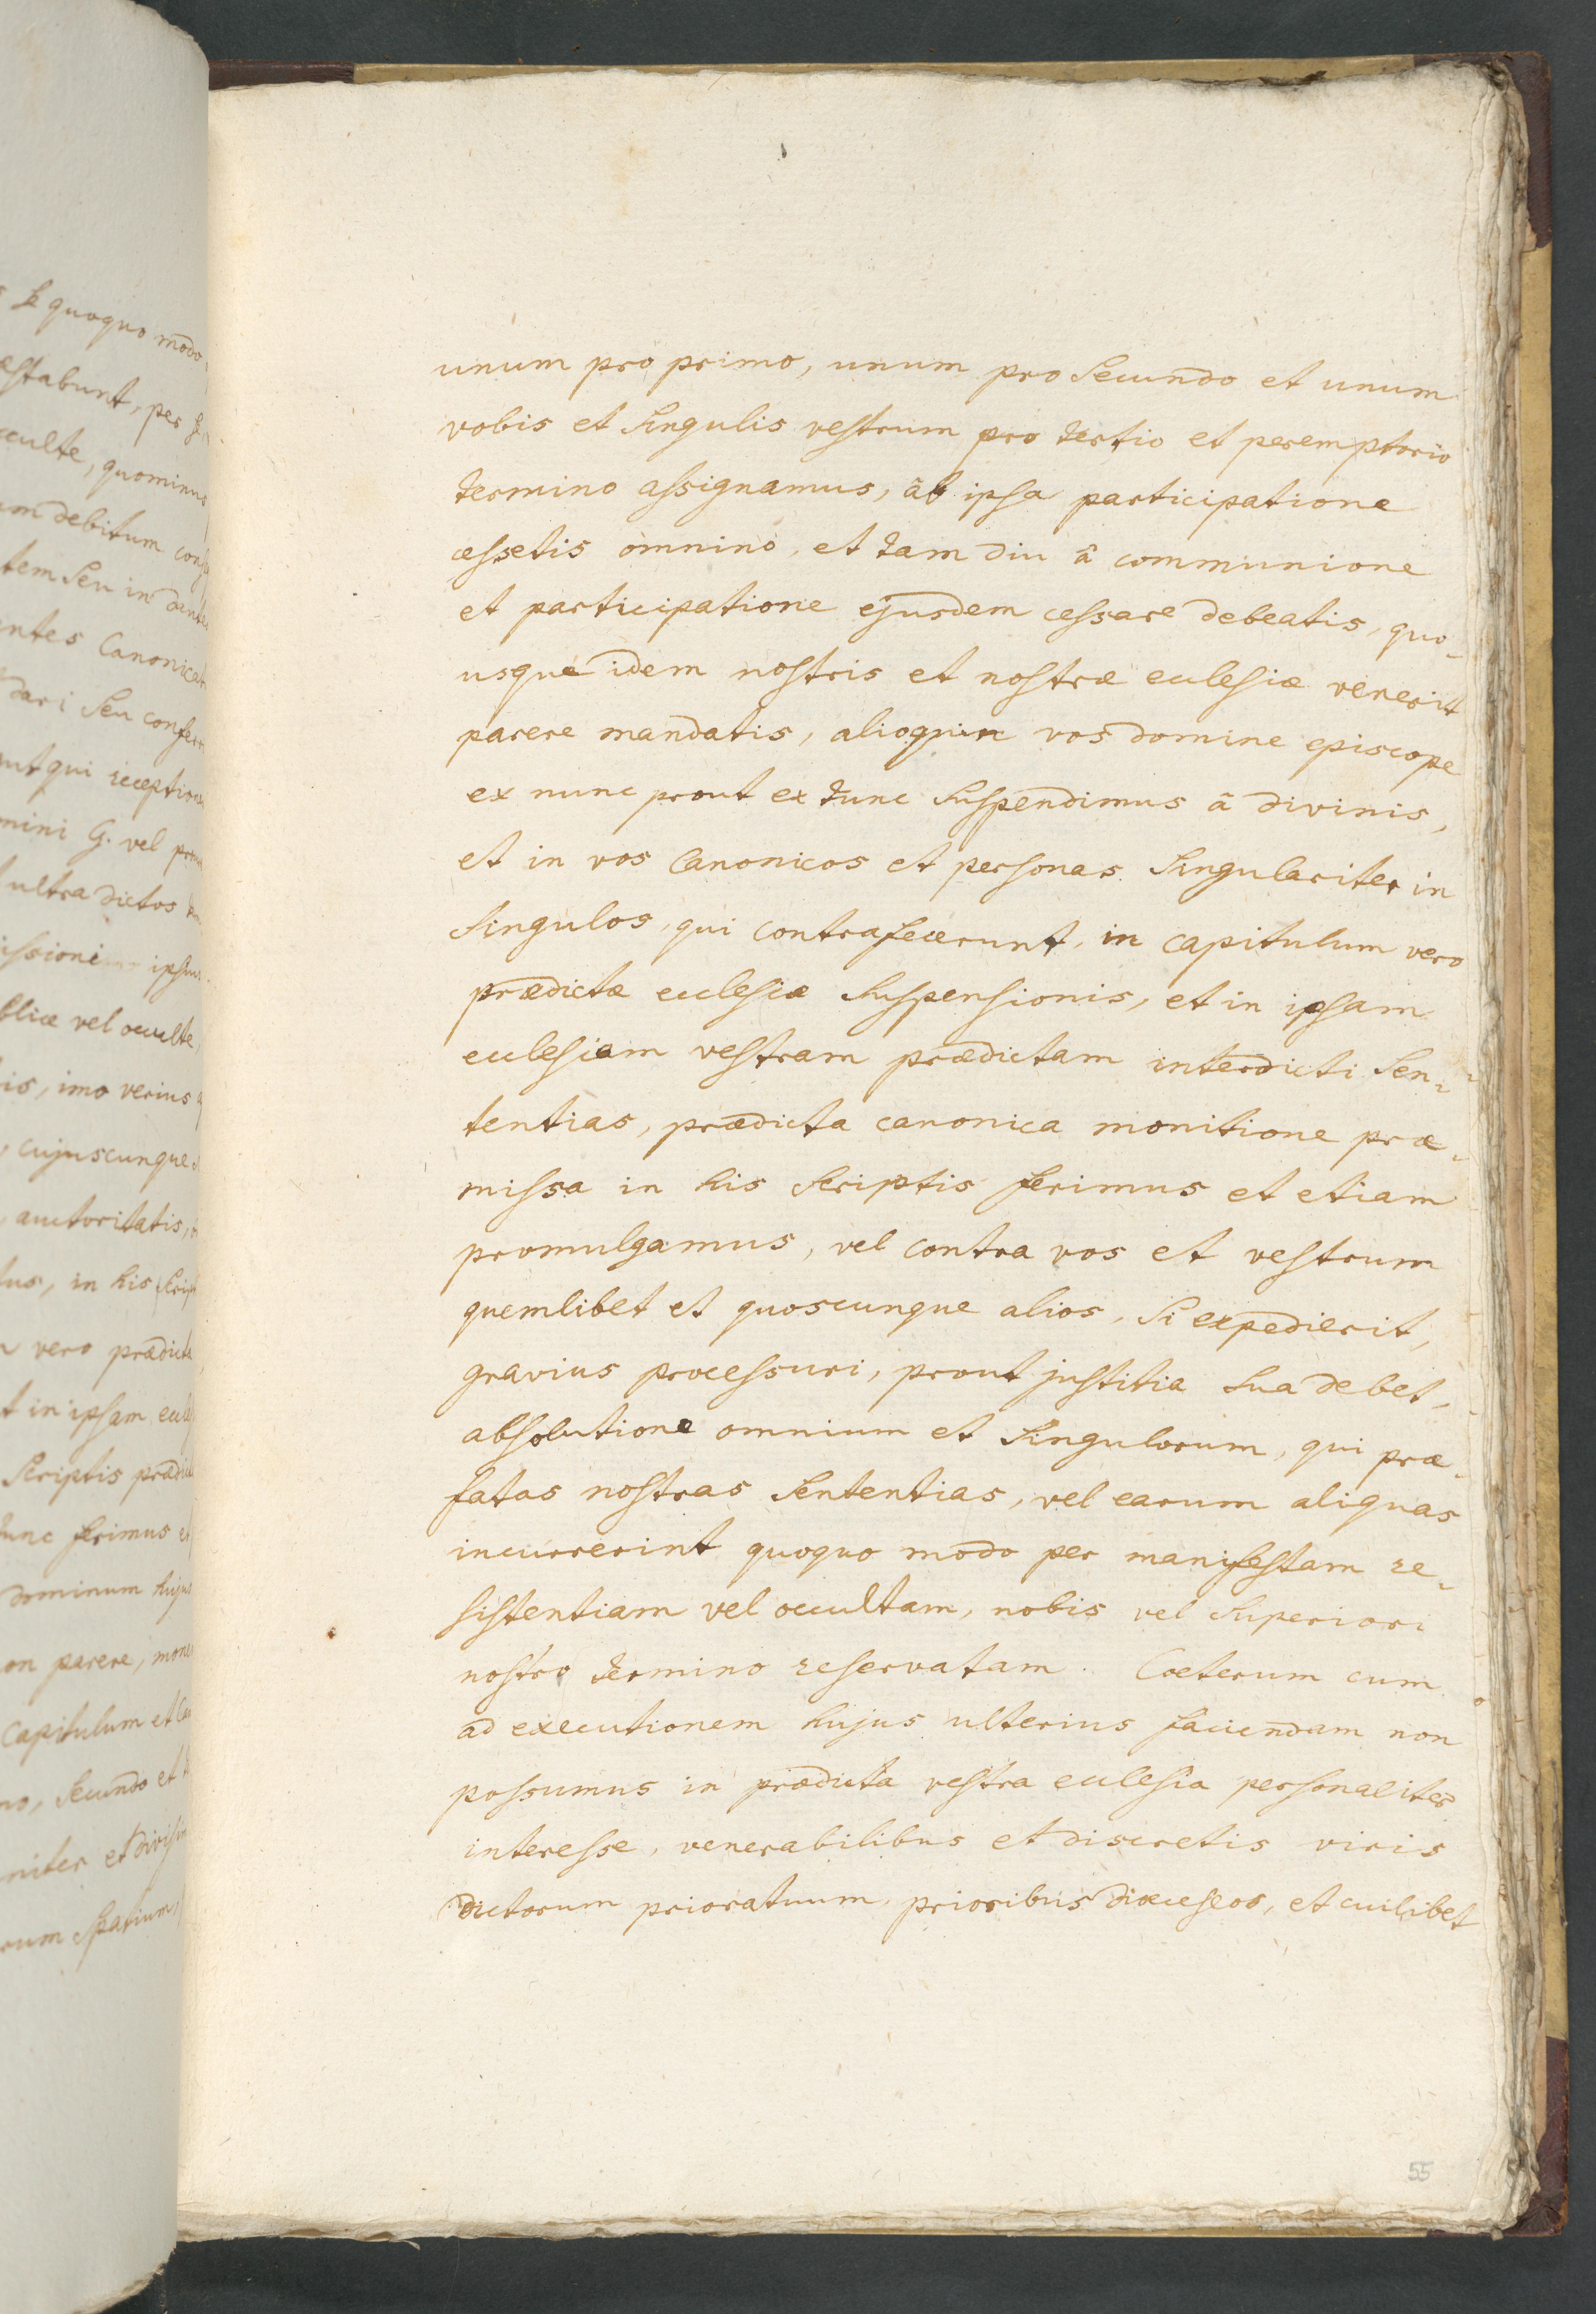 unum pro primo, unum pro secundo et unum
vobis et singulis vestrum pro tertio et peremptorio
termino assignamus, âb ipsa participatione
cessetis omnino, et tam diu â communione
et participatione ejusdem cessare debeatis, quo-
usque idem nostris et nostræ ecclesiæ venerit
parere mandatis, alioquin vos domine episcope
ex nunc prout ex tunc suspendimus â divinis,
et in vos Canonicos et personas singulariter in
singulos, qui contrafecerunt, in capitulum vero
prædictæ ecclesiæ suspensionis, et in ipsam
ecclesiam vestram prædictam interdicti sen-
tentias, prædicta canonica monitione præ-
missa in his scriptis ferimus et etiam
promulgamus, vel contra vos et vestrum
quemlibet et quoscunque alios, si expedierit,
gravius processuri, prout justitia suadebet,
absolutione omnium et singulorum, qui præ-
fatas nostras sententias, vel earum aliquas
incurrerint quoquo modo per manifestam re-
sistentiam vel occultam, nobis vel superiori
nostro termino reservatam. Cæterum cum
ad executionem hujus ulterius faciendam non
possumus in prædicta vestra ecclesia personaliter
interesse, venerabilibus et discretis viris
dictorum prioratuum, prioribus diœceseos, et cuilibet
55
se quoquo modo
estabunt, per
occulte, quominus
debitum
tem seu in
entes Canonicat
dari seu
qui
mini G. vel
ultra dictos
vel occulte,
is, imo verius
cujuscunque
auctoritatis,
in his
vero prædict
t in ipsam
scriptis
ferimus
dominum
parere,
Capitulum et
no, secundo et
et
spatium,